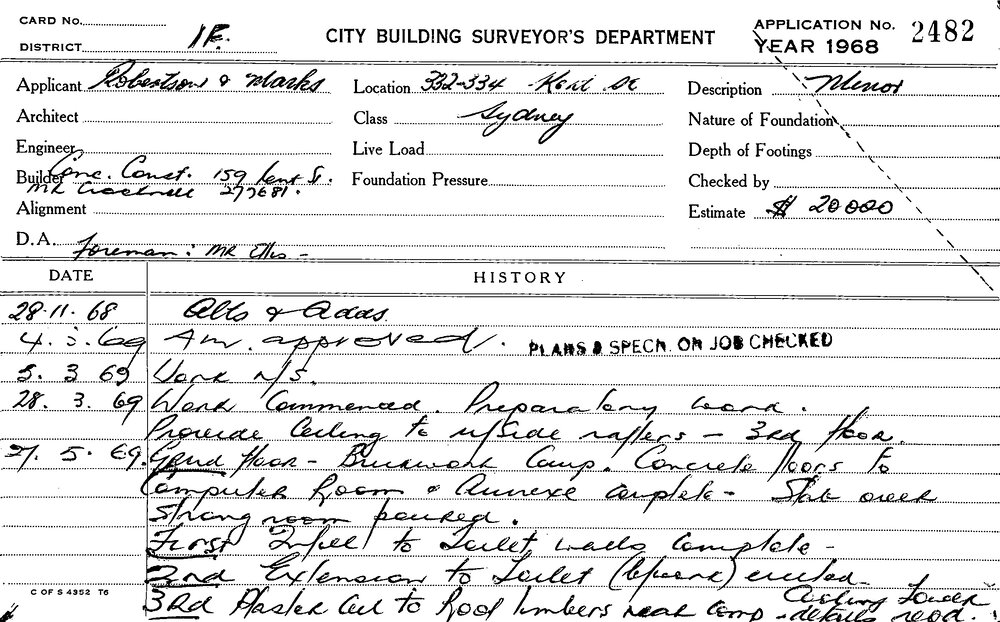 CARD No.
DISTRICT 1F.
CITY BUILDING SURVEYOR'S DEPARTMENT
APPLICATION No. 2482
YEAR 1968
Applicant Robertson & Marks
Location 332-334 Kent St
Description Minor
Architect
Class Sydney
Nature of Foundation
Engineer
Live Load
Depth of Footings
Builder Conc. Const. 159 Kent St.
Mr 277681.
Foundation Pressure
Checked by
Alignment
Estimate $ 20000
D.A.
Foreman: Mr Ellis -
DATE HISTORY
28.11.68 Alts & Adds.
4. 3. 69 Am. approved. PLANS & SPECN. ON JOB CHECKED
5. 3 69 Work N/S.
28. 3. 69 Work Commenced. Preparatory work.
Provide Ceiling to u/side rafters - 3rd floor.
27. 5. 69. Grnd floor - Brickwork Comp. Concrete floors to
Computer Room & Annexe complete - Slab over
Strong room poured.
First Infill to Toilet walls complete -
2nd Extension to Toilet (b/work) erected -
3Rd Plaster Ceil to Roof timbers near Comp - Cooling Tower
details reqd.
C OF S 4352 T6